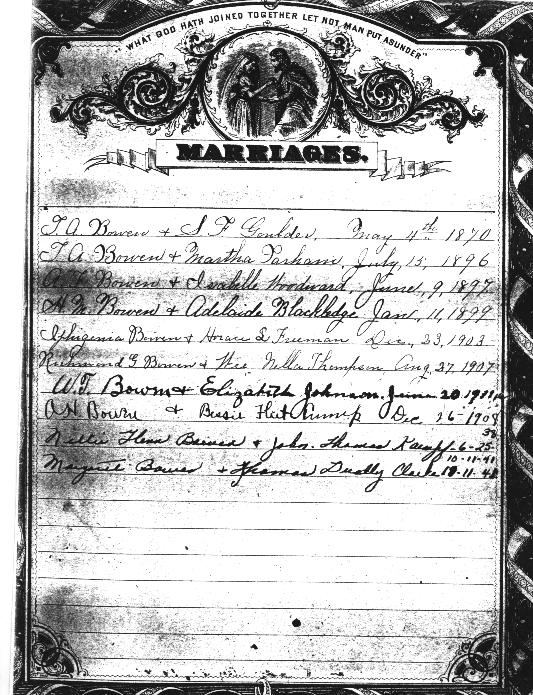 "WHAT GOD HATH JOINED TOGETHER LET NOT MAN PUT ASUNDER"
MARRIAGES.
T. A. Bowen & S F Goulder. May 4th 1870
T. A. Bowen & Martha Parham, July, 15, 1896
Bowen & Isabelle Woodward, June, 9, 1897
Bowen & Adelaide Blackledge Jan, 11, 1899
Iphigenia Bowen & Horace L Freeman Dec, 23, 1903
Richmond G Bowen & Nella Thompson Aug 27 1907
W.T. Bowen & Elizabeth Johnson June 20
Bowen & Bessie Dec, 16-1908
Nellie Bowen & John. Thomas 6-25-38
Margaret Bowen & Thomas Dudly 10-11-41